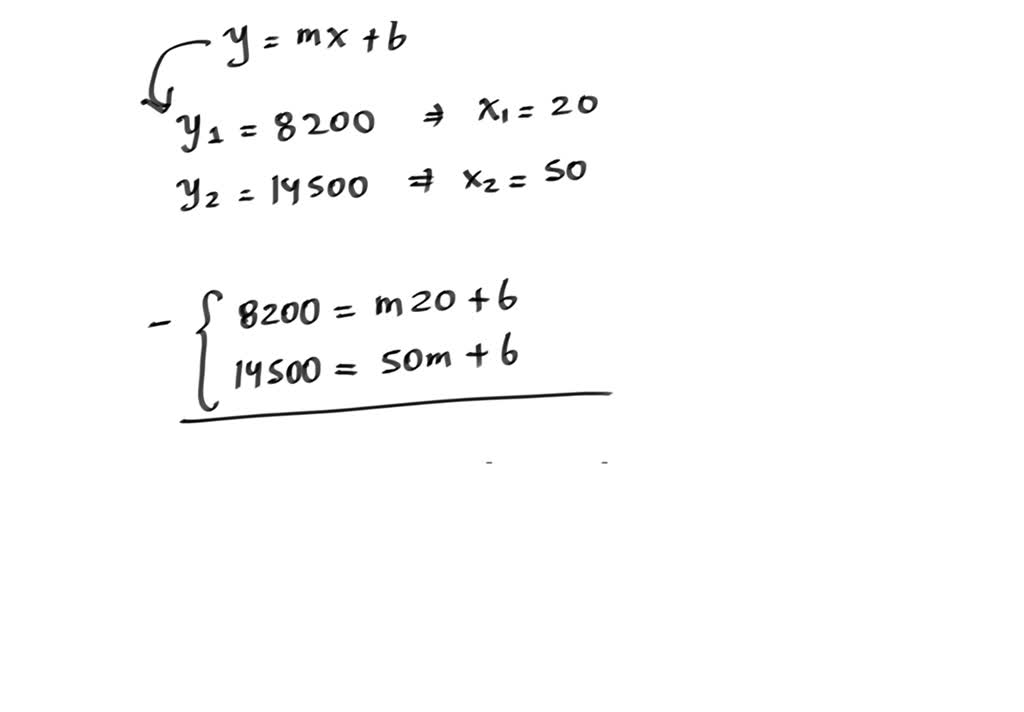 y = mx + b
y1 = 8200 ⇒ x1 = 20
y2 = 14500 ⇒ x2 = 50
- { 8200 = m20 + b
14500 = 50m + b